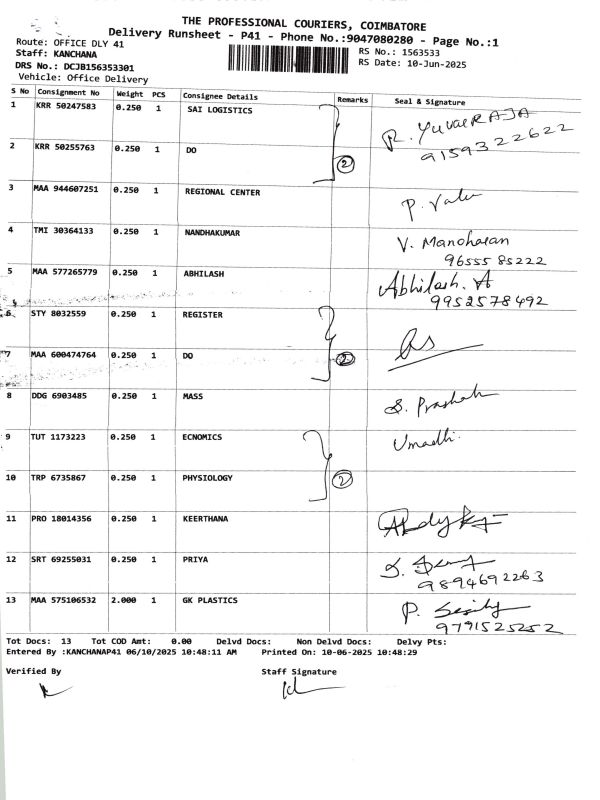 THE PROFESSIONAL COURIERS, COIMBATORE
Delivery Runsheet - P41 - Phone No.:9047080280 - Page No.:1
Route: OFFICE DLY 41
Staff: KANCHANA
RS No.: 1563533
DRS No.: DCJB156353301
RS Date: 10-Jun-2025
Vehicle: Office Delivery
S No Consignment No Weight PCS Consignee Details Remarks Seal & Signature
1 KRR 50247583 0.250 1 SAI LOGISTICS
9159322622
2 KRR 50255763 0.250 1 DO 2
3 MAA 944607251 0.250 1 REGIONAL CENTER
4 TMI 30364133 0.250 1 NANDHAKUMAR V. Manoharan
9655585222
5 MAA 577265779 0.250 1 ABHILASH Abhilash. A
9952578492
6 STY 8032559 0.250 1 REGISTER
7 MAA 600474764 0.250 1 DO 2
8 DDG 6903485 0.250 1 MASS S. Prashah
9 TUT 1173223 0.250 1 ECNOMICS Umadhi
10 TRP 6735867 0.250 1 PHYSIOLOGY 2
11 PRO 18014356 0.250 1 KEERTHANA
12 SRT 69255031 0.250 1 PRIYA
9894692263
13 MAA 575106532 2.000 1 GK PLASTICS
9791525252
Tot Docs: 13 Tot COD Amt: 0.00 Delvd Docs: Non Delvd Docs: Delvy Pts:
Entered By :KANCHANAP41 06/10/2025 10:48:11 AM Printed On: 10-06-2025 10:48:29
Verified By Staff Signature